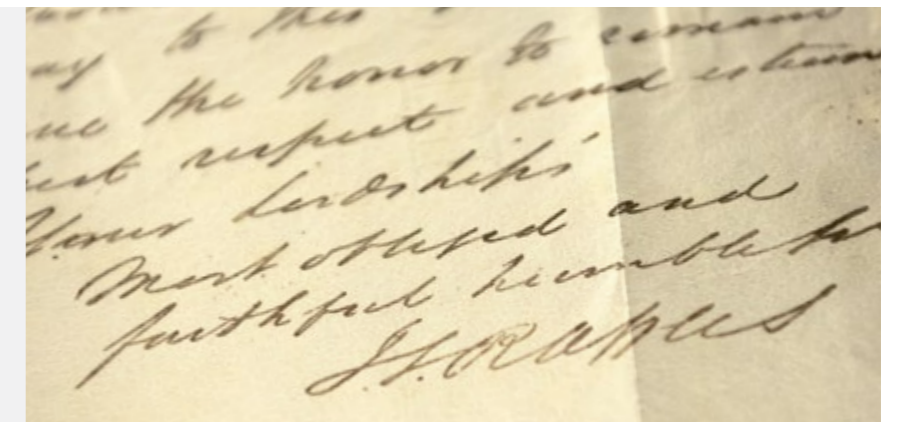 to this
the honor to remain
respect and esteem
Your Lordship's
Most obliged and
faithful humble